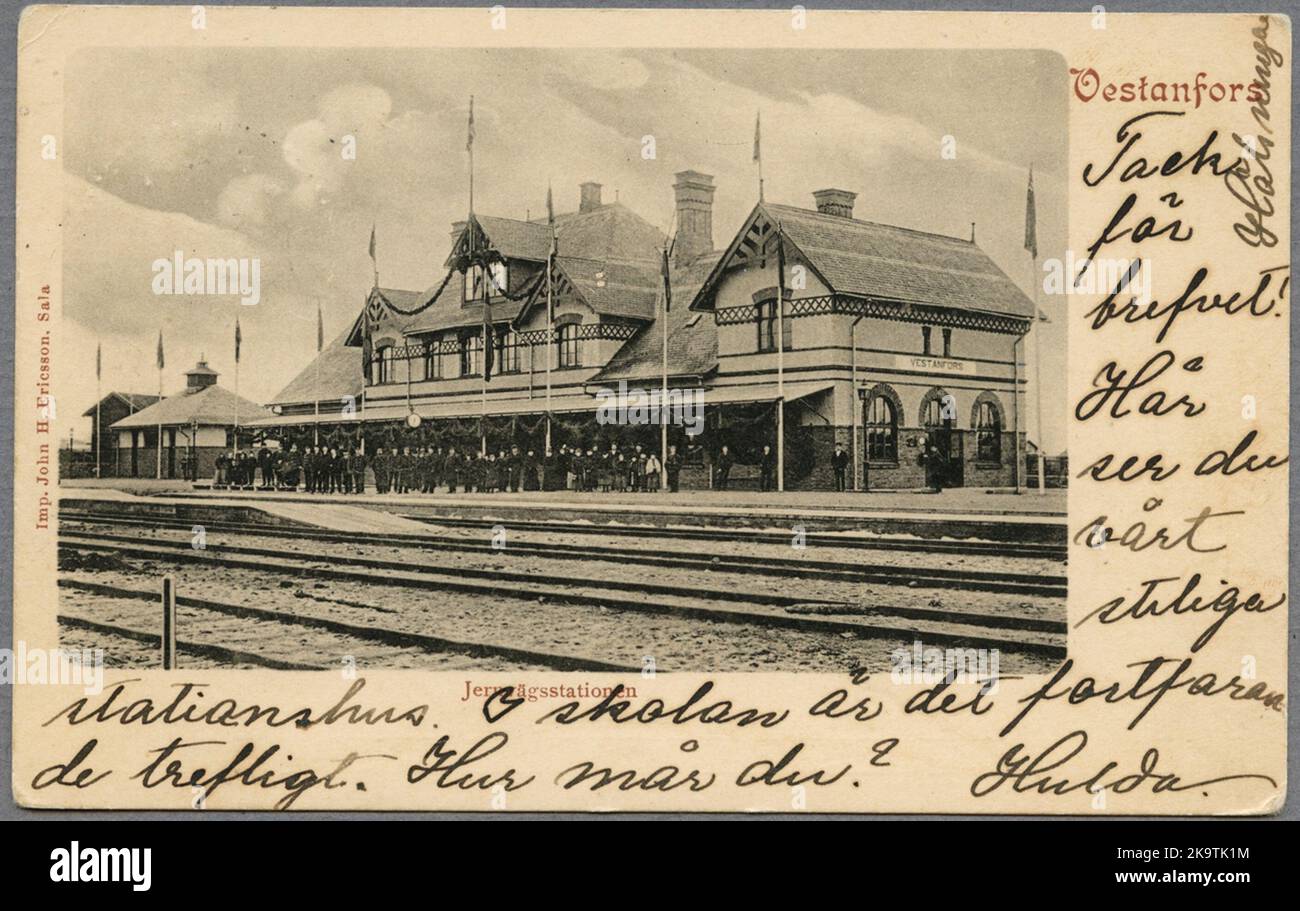 Vestanfors
Tack
för
brefvet!
Här
ser du
vårt
stiliga
stationshus. I skolan är det fortfaran
de trefligt. Hur mår du? Hulda.
Jernvägsstationen
Imp. John H. Ericsson. Sala
VESTANFORS
alamy
Image ID: 2K9TK1M
www.alamy.com